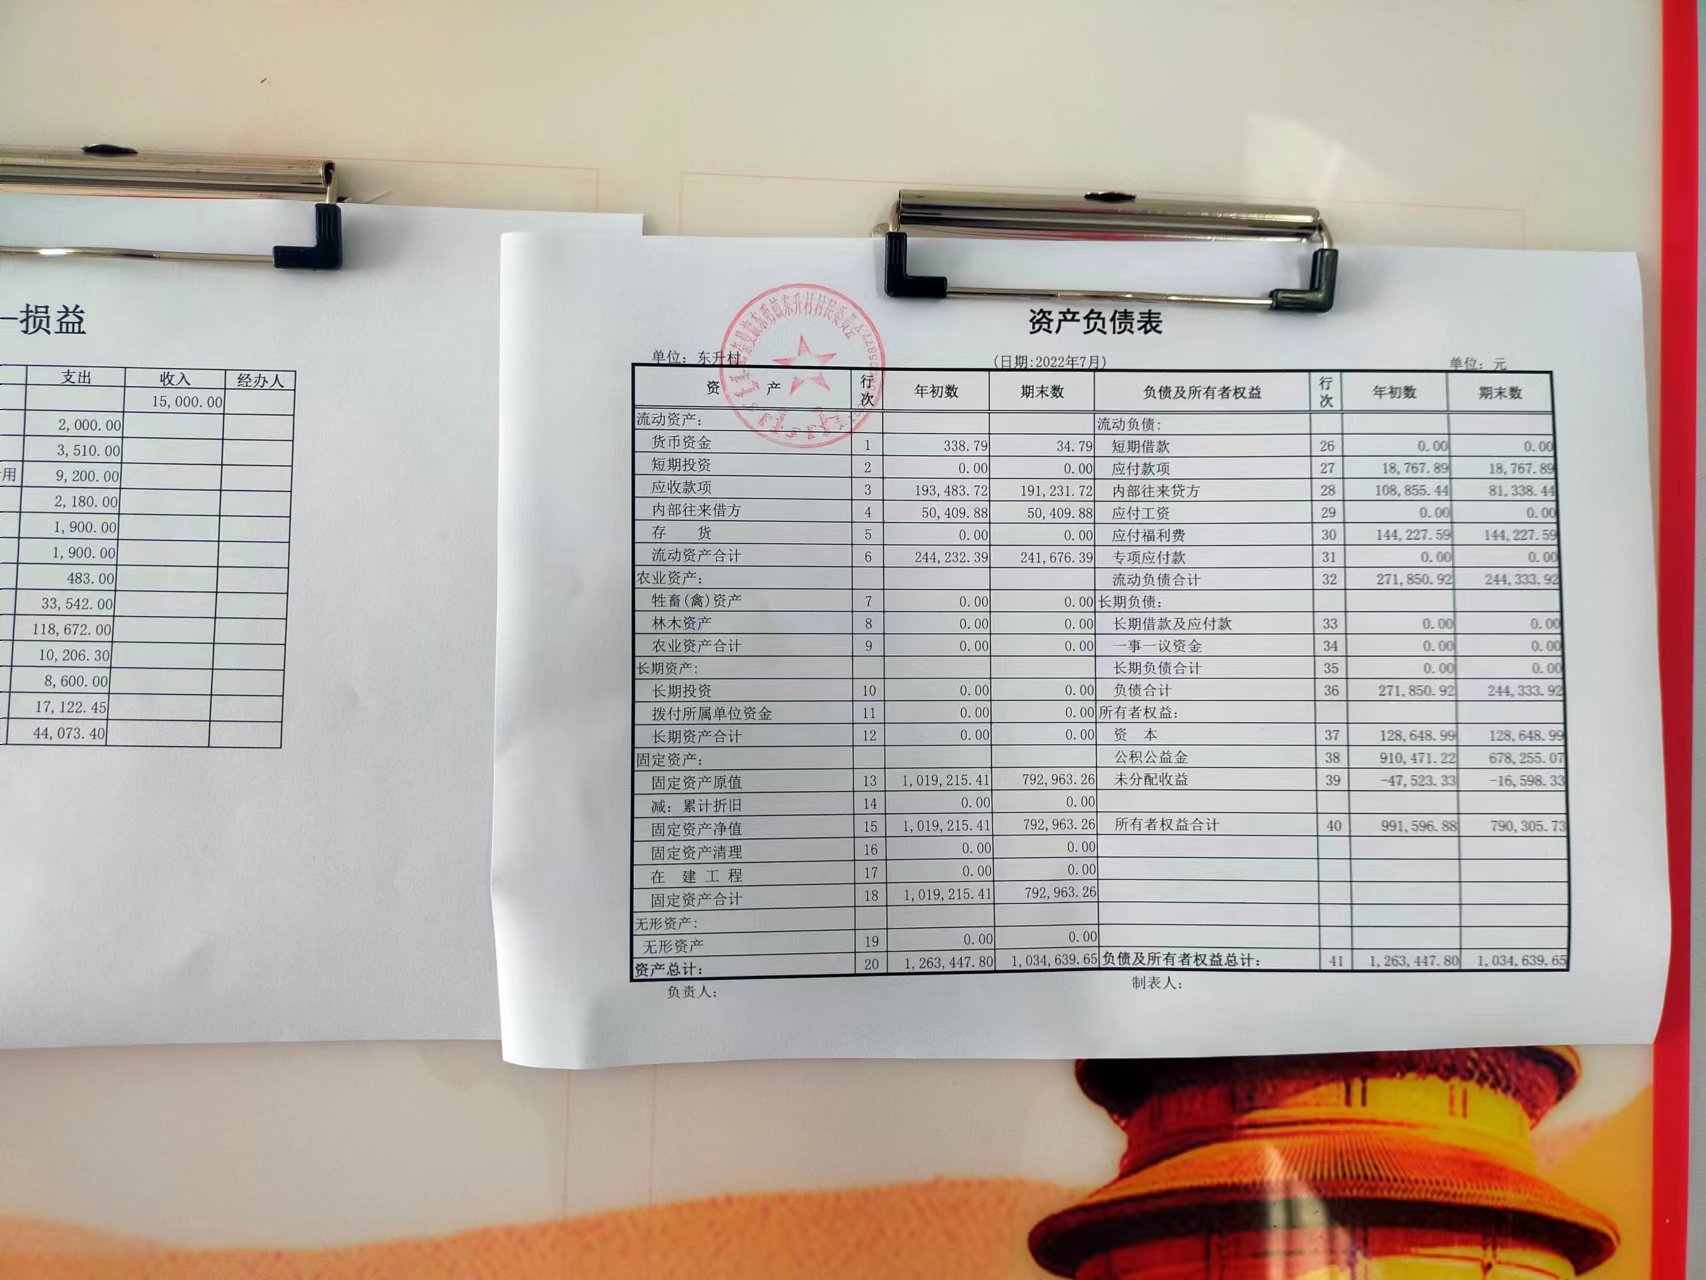 一损益
支出 收入 经办人
15,000.00
2,000.00
3,510.00
用 9,200.00
2,180.00
1,900.00
1,900.00
483.00
33,542.00
118,672.00
10,206.30
8,600.00
17,122.45
44,073.40
资产负债表
单位：东升村 (日期:2022年7月) 单位：元
资 产 行次 年初数 期末数 负债及所有者权益 行次 年初数 期末数
流动资产： 流动负债：
货币资金 1 338.79 34.79 短期借款 26 0.00 0.00
短期投资 2 0.00 0.00 应付款项 27 18,767.89 18,767.89
应收款项 3 193,483.72 191,231.72 内部往来贷方 28 108,855.44 81,338.44
内部往来借方 4 50,409.88 50,409.88 应付工资 29 0.00 0.00
存 货 5 0.00 0.00 应付福利费 30 144,227.59 144,227.59
流动资产合计 6 244,232.39 241,676.39 专项应付款 31 0.00 0.00
农业资产： 流动负债合计 32 271,850.92 244,333.92
牲畜(禽)资产 7 0.00 0.00 长期负债：
林木资产 8 0.00 0.00 长期借款及应付款 33 0.00 0.00
农业资产合计 9 0.00 0.00 一事一议资金 34 0.00 0.00
长期资产： 长期负债合计 35 0.00 0.00
长期投资 10 0.00 0.00 负债合计 36 271,850.92 244,333.92
拨付所属单位资金 11 0.00 0.00 所有者权益：
长期资产合计 12 0.00 0.00 资 本 37 128,648.99 128,648.99
固定资产： 公积公益金 38 910,471.22 678,255.07
固定资产原值 13 1,019,215.41 792,963.26 未分配收益 39 -47,523.33 -16,598.33
减：累计折旧 14 0.00 0.00
固定资产净值 15 1,019,215.41 792,963.26 所有者权益合计 40 991,596.88 790,305.73
固定资产清理 16 0.00 0.00
在 建 工 程 17 0.00 0.00
固定资产合计 18 1,019,215.41 792,963.26
无形资产：
无形资产 19 0.00 0.00
资产总计： 20 1,263,447.80 1,034,639.65 负债及所有者权益总计： 41 1,263,447.80 1,034,639.65
负责人： 制表人：